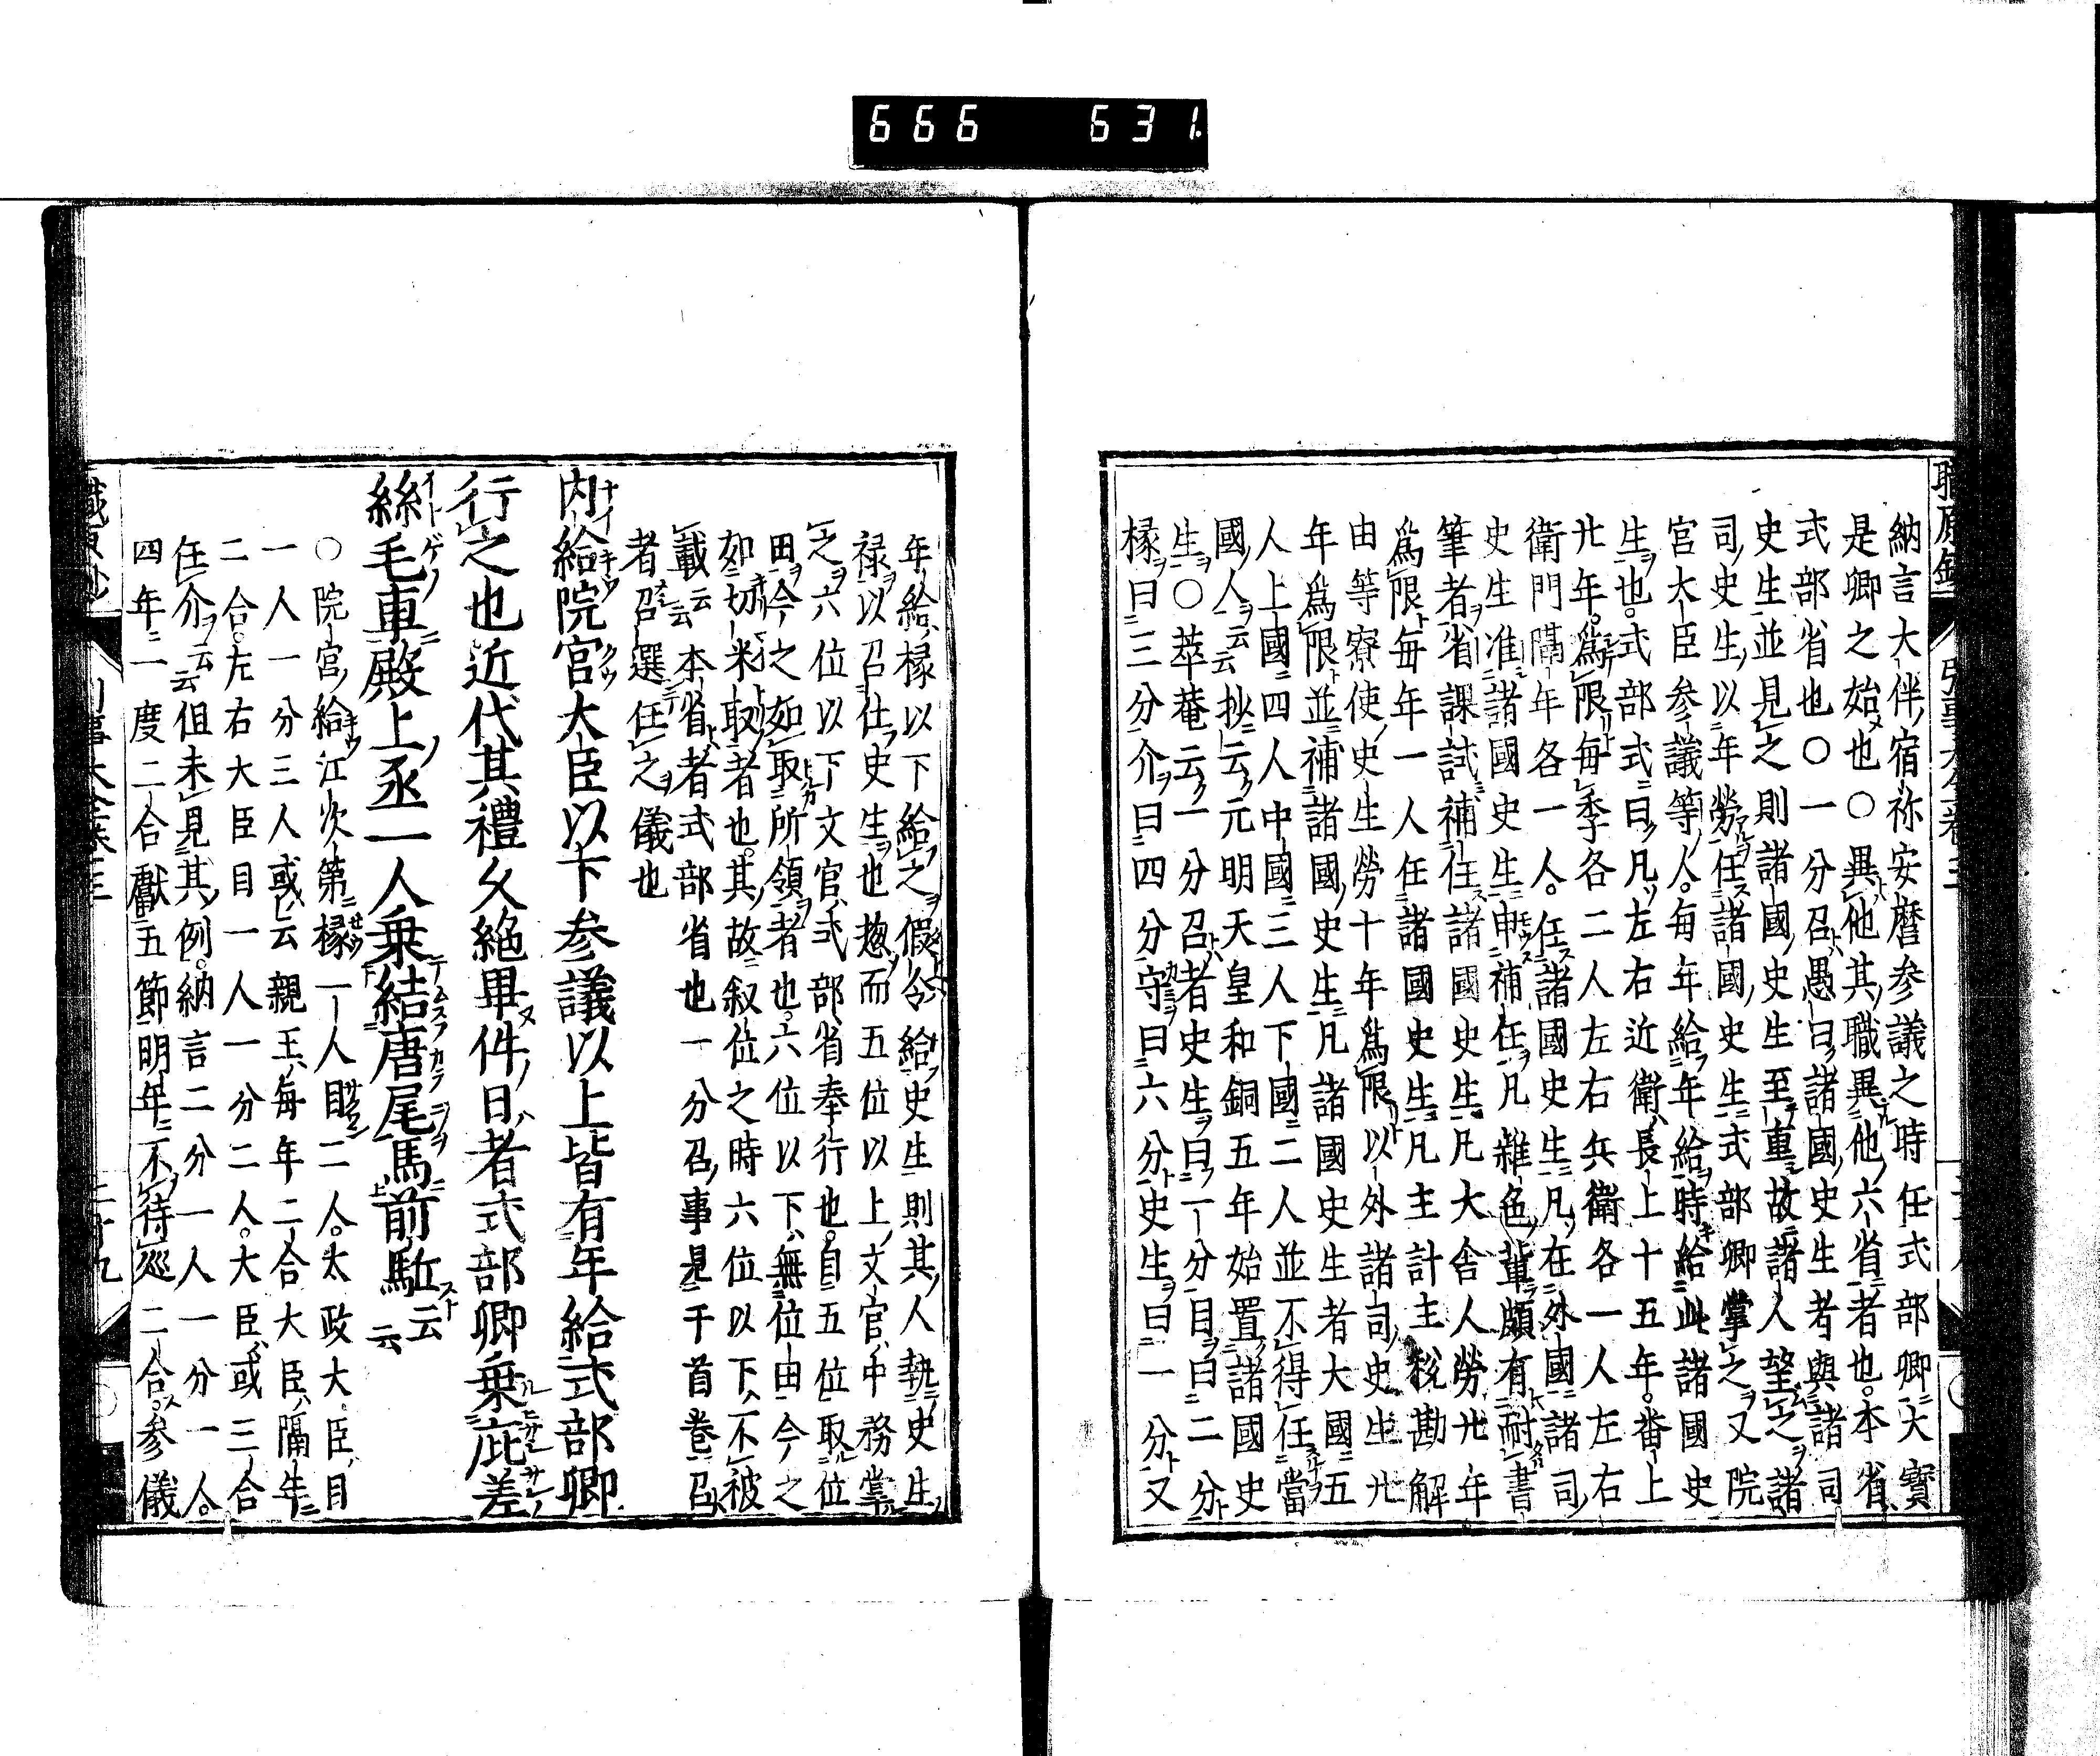 666 631
納言大伴宿祢安麿参議之時任式部卿大寶
是卿之始也○異他其職異他六省者也本省
式部省也○一分召愚曰諸國史生考與諸司
史生並見之則諸國史生至重故諸人望之諸
司史生以年勞任諸國史生式部卿掌之又院
宮大臣参議等人每年給年給時給此諸國史
生也式部式曰凡左右近衛長上十五年畨上
廿年爲限每季各二人左右兵衛各一人左右
衛門隔年各一人任諸國史生凡在外國諸司
史生准諸國史生申補任凡雜色輩頗有耐書
筆者省課試補任諸國史生凡大舎人勞廿年
爲限每年一人任諸國史生凡主計主税勘解
由等寮使史生勞十年爲限以外諸司史生廿
年爲限並補諸國史生凡諸國史生者大國五
人上國四人中國三人下國二人並不得任當
國人云云抄云元明天皇和銅五年始置諸國史
生○萃菴云一分召者史生曰一分目曰二分
椽曰三分介曰四分守曰六分史生曰一分又
年給椽以下給之假令給史生則其人執史生
禄以召仕史生也惣而五位以上文官中務掌
之六位以下文官式部省奉行也自五位取位
田今之如取所領者也六位以下無位由今之
如切米取者也其故叙位之時六位以下不被
載云云本省者式部省也一分召事見于首卷召
者召選任之儀也
内給院宮大臣以下参議以上皆有年給式部卿
行之也近代其禮久絶畢件日者式部卿乗庇差
絲毛車殿上丞一人乗結唐尾馬前駈云云
○院宮給江次第椽一人目二人太政大臣目
一人一分三人或云親王每年二合大臣隔年
二合左右大臣目一人一分二人大臣或三合
任介云云但未見其例納言二分一人一分一人
四年二一度二合獻五節明年不待巡二合参儀